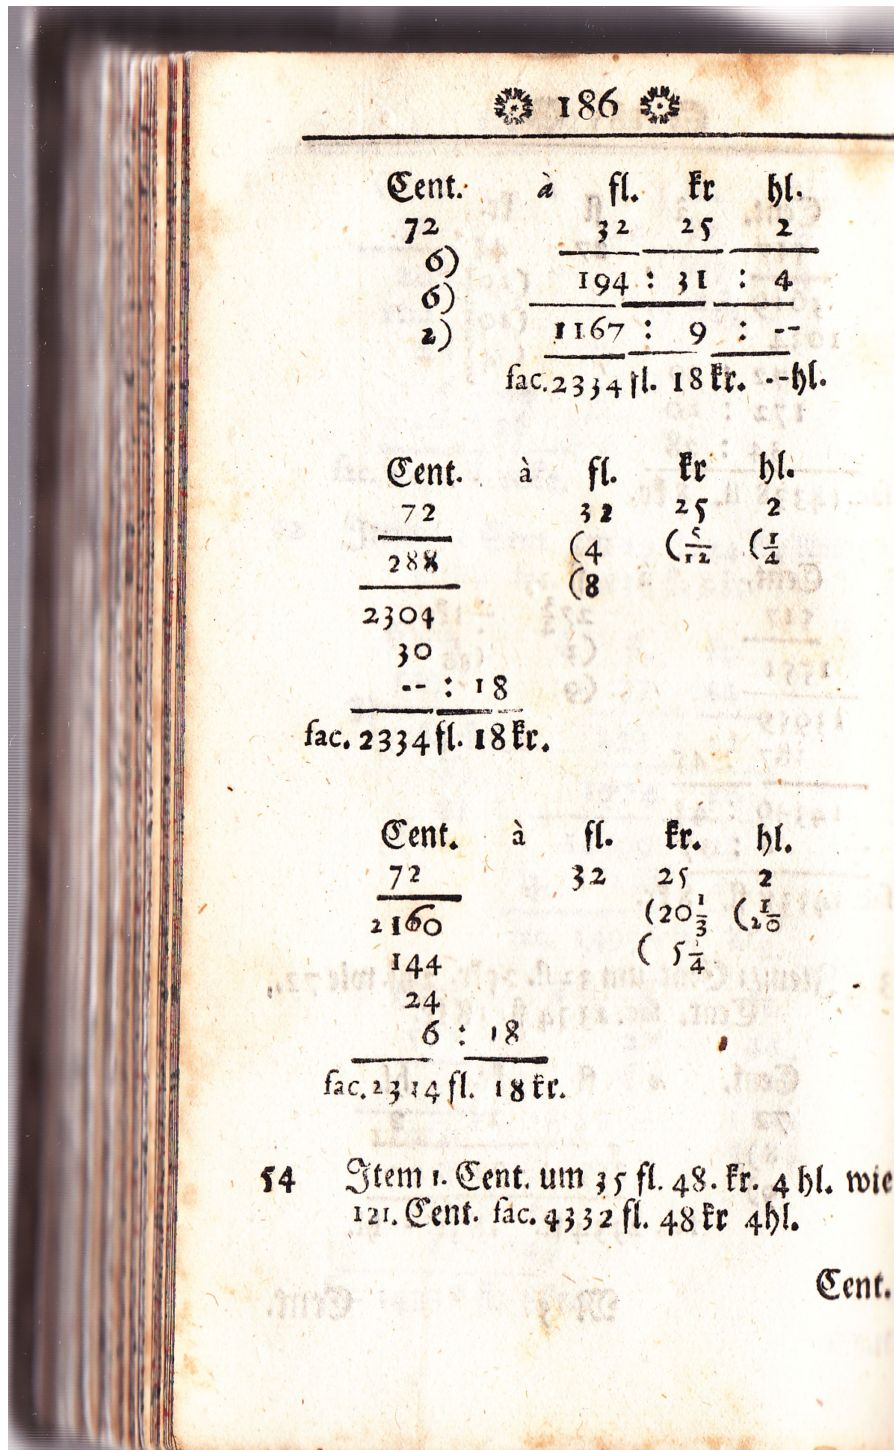 186
Cent. à fl. kr hl.
72 32 25 2
6)
194 : 31 : 4
6)
2) 1167 : 9 : --
fac. 2334 fl. 18 kr. --hl.
Cent. à fl. kr hl.
72 32 25 2
288 (4 (5/12 (1/4
(8
2304
30
-- : 18
fac. 2334 fl. 18 kr.
Cent. à fl. kr. hl.
72 32 25 2
2160 (20 1/3 (1/20
144 ( 5 1/4
24
6 : 18
fac. 2334 fl. 18 kr.
54 Item 1. Cent. um 35 fl. 48. kr. 4 hl. wie
121. Cent. fac. 4332 fl. 48 kr 4hl.
Cent.